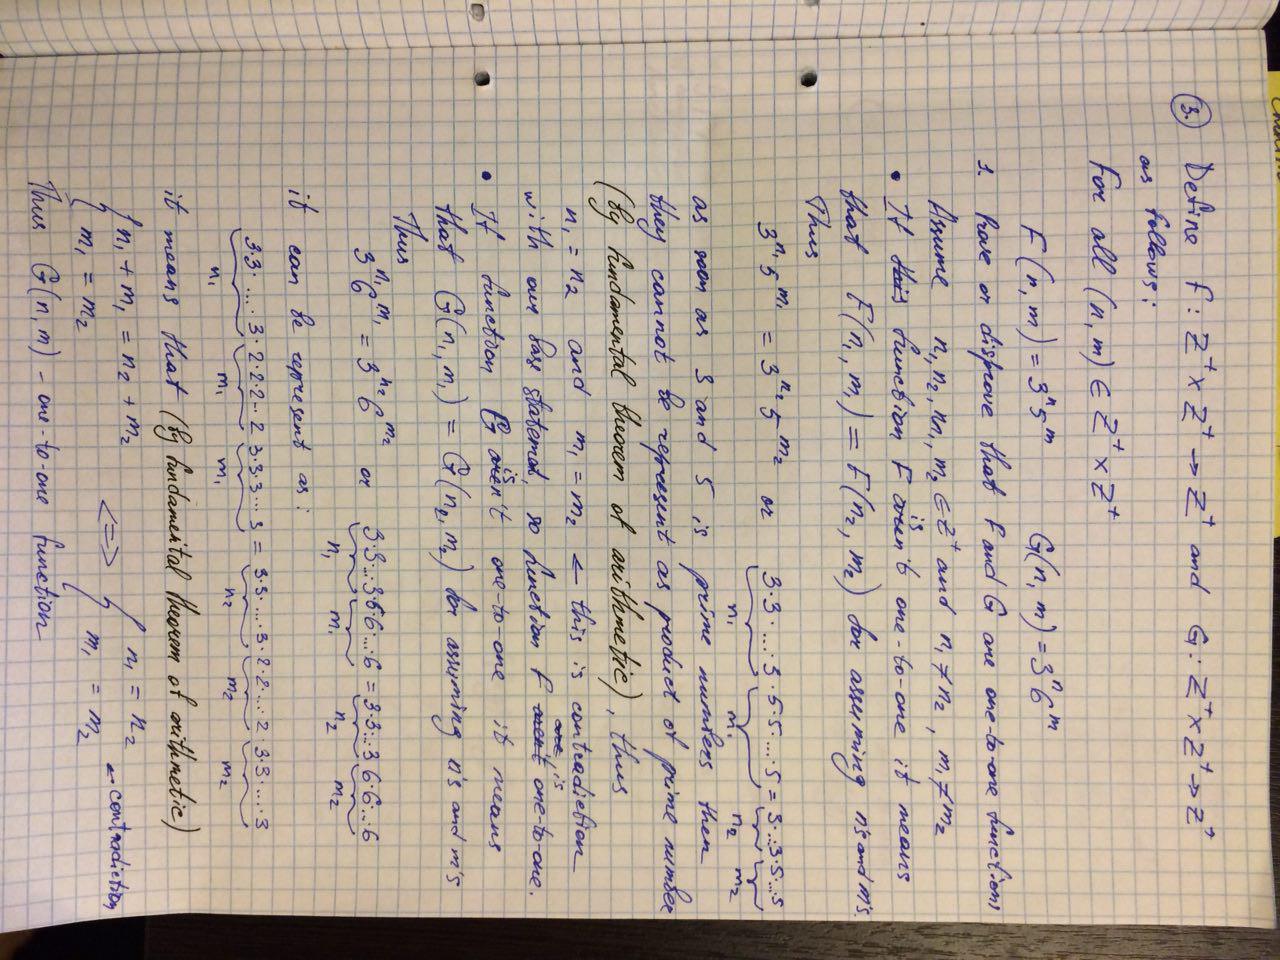 3. Define F: Z⁺ x Z⁺ → Z⁺ and G: Z⁺ x Z⁺ → Z⁺
as follows:
For all (n, m) ∈ Z⁺ x Z⁺
F(n, m) = 3ⁿ5ᵐ G(n, m) = 3ⁿ6ᵐ
1. Prove or disprove that F and G are one-to-one functions
Assume n₁, n₂, m₁, m₂ ∈ Z⁺ and n₁ ≠ n₂, m₁ ≠ m₂
• If function F is one-to-one it means
that F(n₁, m₁) = F(n₂, m₂) for assuming n's and m's.
Thus
3^n₁ 5^m₁ = 3^n₂ 5^m₂ or 3·3·...·3·5·5·...·5 = 3...3·5...5
n₁ m₁ n₂ m₂
as soon as 3 and 5 is prime numbers then
they cannot be represent as product of prime number
(by fundamental theorem of arithmetic), thus
n₁ = n₂ and m₁ = m₂ ← this is contradiction
with our statement, so function F is one-to-one.
• If function G is one-to-one it means
that G(n₁, m₁) = G(n₂, m₂) for assuming n's and m's
Thus
3^n₁ 6^m₁ = 3^n₂ 6^m₂ or 3·3...3·6·6...6 = 3·3...3 6·6...6
n₁ m₁ n₂ m₂
it can be represent as:
3·3·...·3·2·2·2...2 3·3·3...3 = 3·3....3·2·2...2·3·3...·3
n₁ m₁ m₁ n₂ m₂ m₂
it means that (by fundamental theorem of arithmetic)
{ n₁ + m₁ = n₂ + m₂ <=> { n₁ = n₂
m₁ = m₂ m₁ = m₂ ← contradiction
Thus G(n, m) - one-to-one function